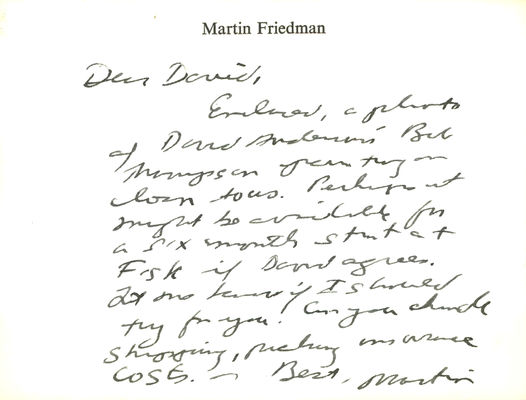 Martin Friedman
Dear David,
Enclosed, a photo
of David Anderson's Bob
Thompson painting on
loan to us. Perhaps it
might be available for
a six month stint at
Fisk if David agrees.
Let me know if I should
try for you. Can you handle
shipping, packing insurance
costs. — Best, Martin